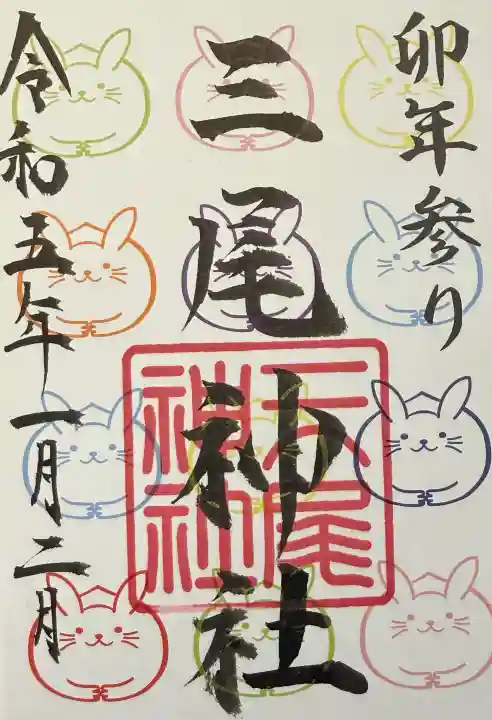 卯年参り
三尾神社
三尾
神社
令和五年一月二日